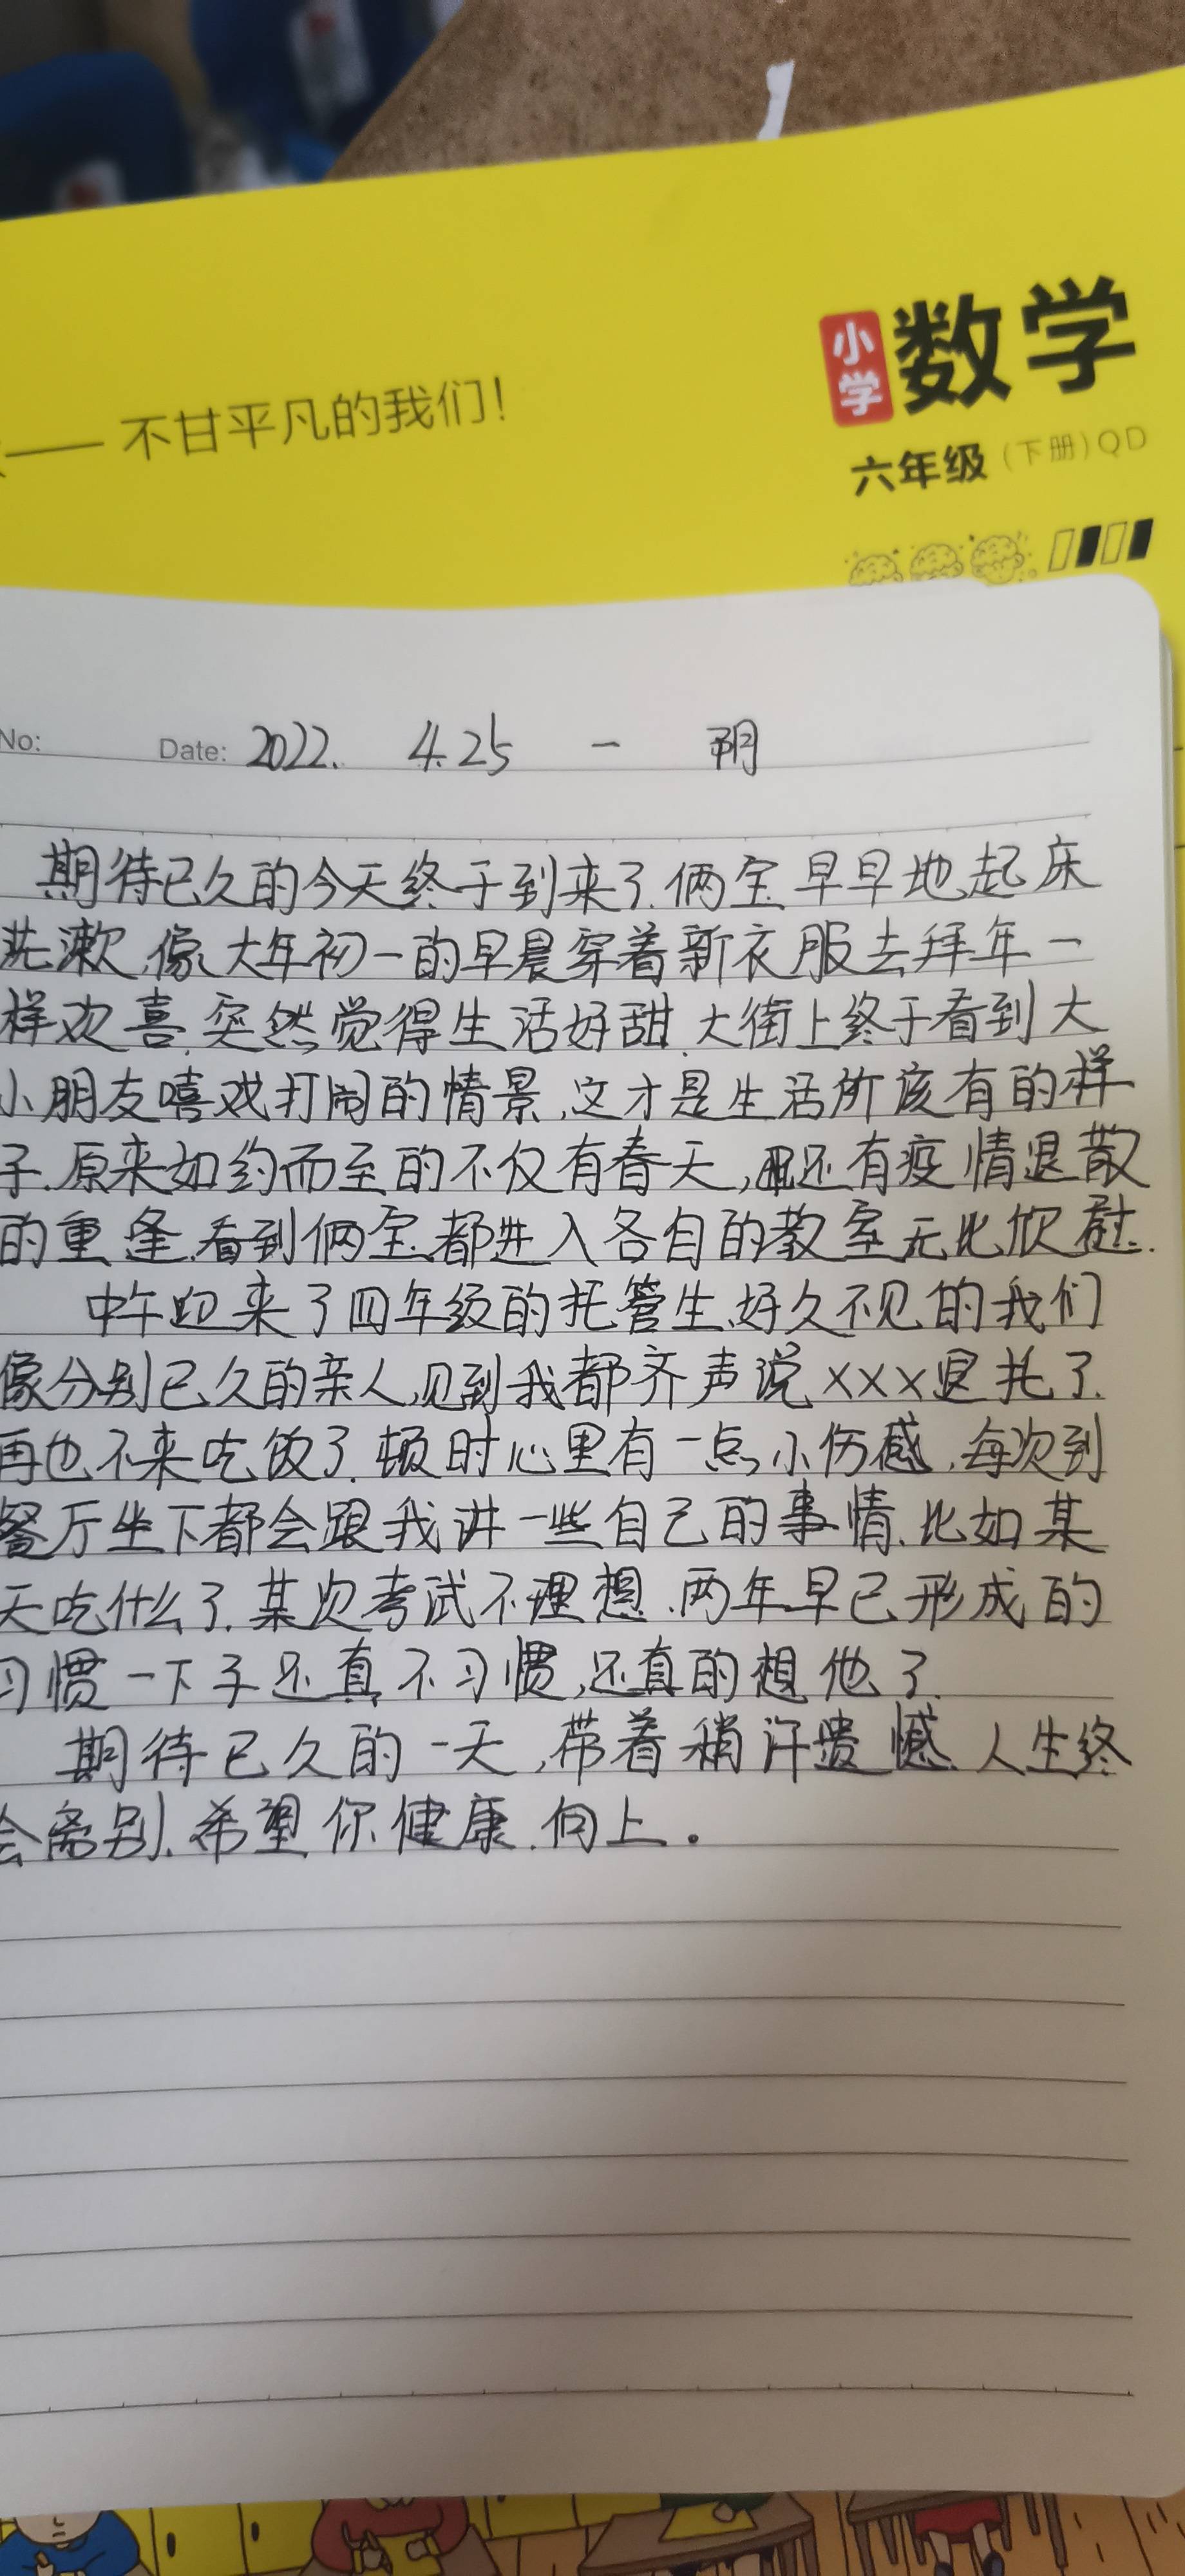 小学 数学
—— 不甘平凡的我们！
六年级（下册）QD
No: Date: 2022. 4.25 一 阴
期待已久的今天终于到来了.俩宝早早地起床
洗漱.像大年初一的早晨穿着新衣服去拜年一
样欢喜.突然觉得生活好甜.大街上终于看到大
小朋友嘻戏打闹的情景.这才是生活所该有的样
子.原来如约而至的不仅有春天,还有疫情退散
的重逢.看到俩宝都进入各自的教室无比欣慰.
中午迎来了四年级的托管生.好久不见的我们
像分别已久的亲人,见到我都齐声说×××退托了.
再也不来吃饭了.顿时心里有一点小伤感.每次到
餐厅坐下都会跟我讲一些自己的事情.比如某
天吃什么了.某次考试不理想.两年早已形成的
习惯一下子还真不习惯,还真的想他了.
期待已久的一天,带着稍许遗憾.人生终
会离别.希望你健康.向上。